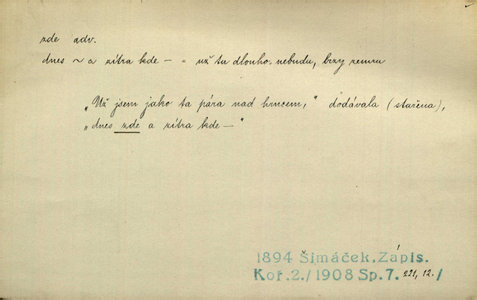 zde adv.
dnes ~ a zítra kde — = už tu dlouho nebudu, brzy zemru
„Už jsem jako ta pára nad hrncem," dodávala (stařena),
„dnes zde a zítra kde —"
1894 Šimáček, Zápis.
Koř. 2./1908 Sp. 7. 221, 12./